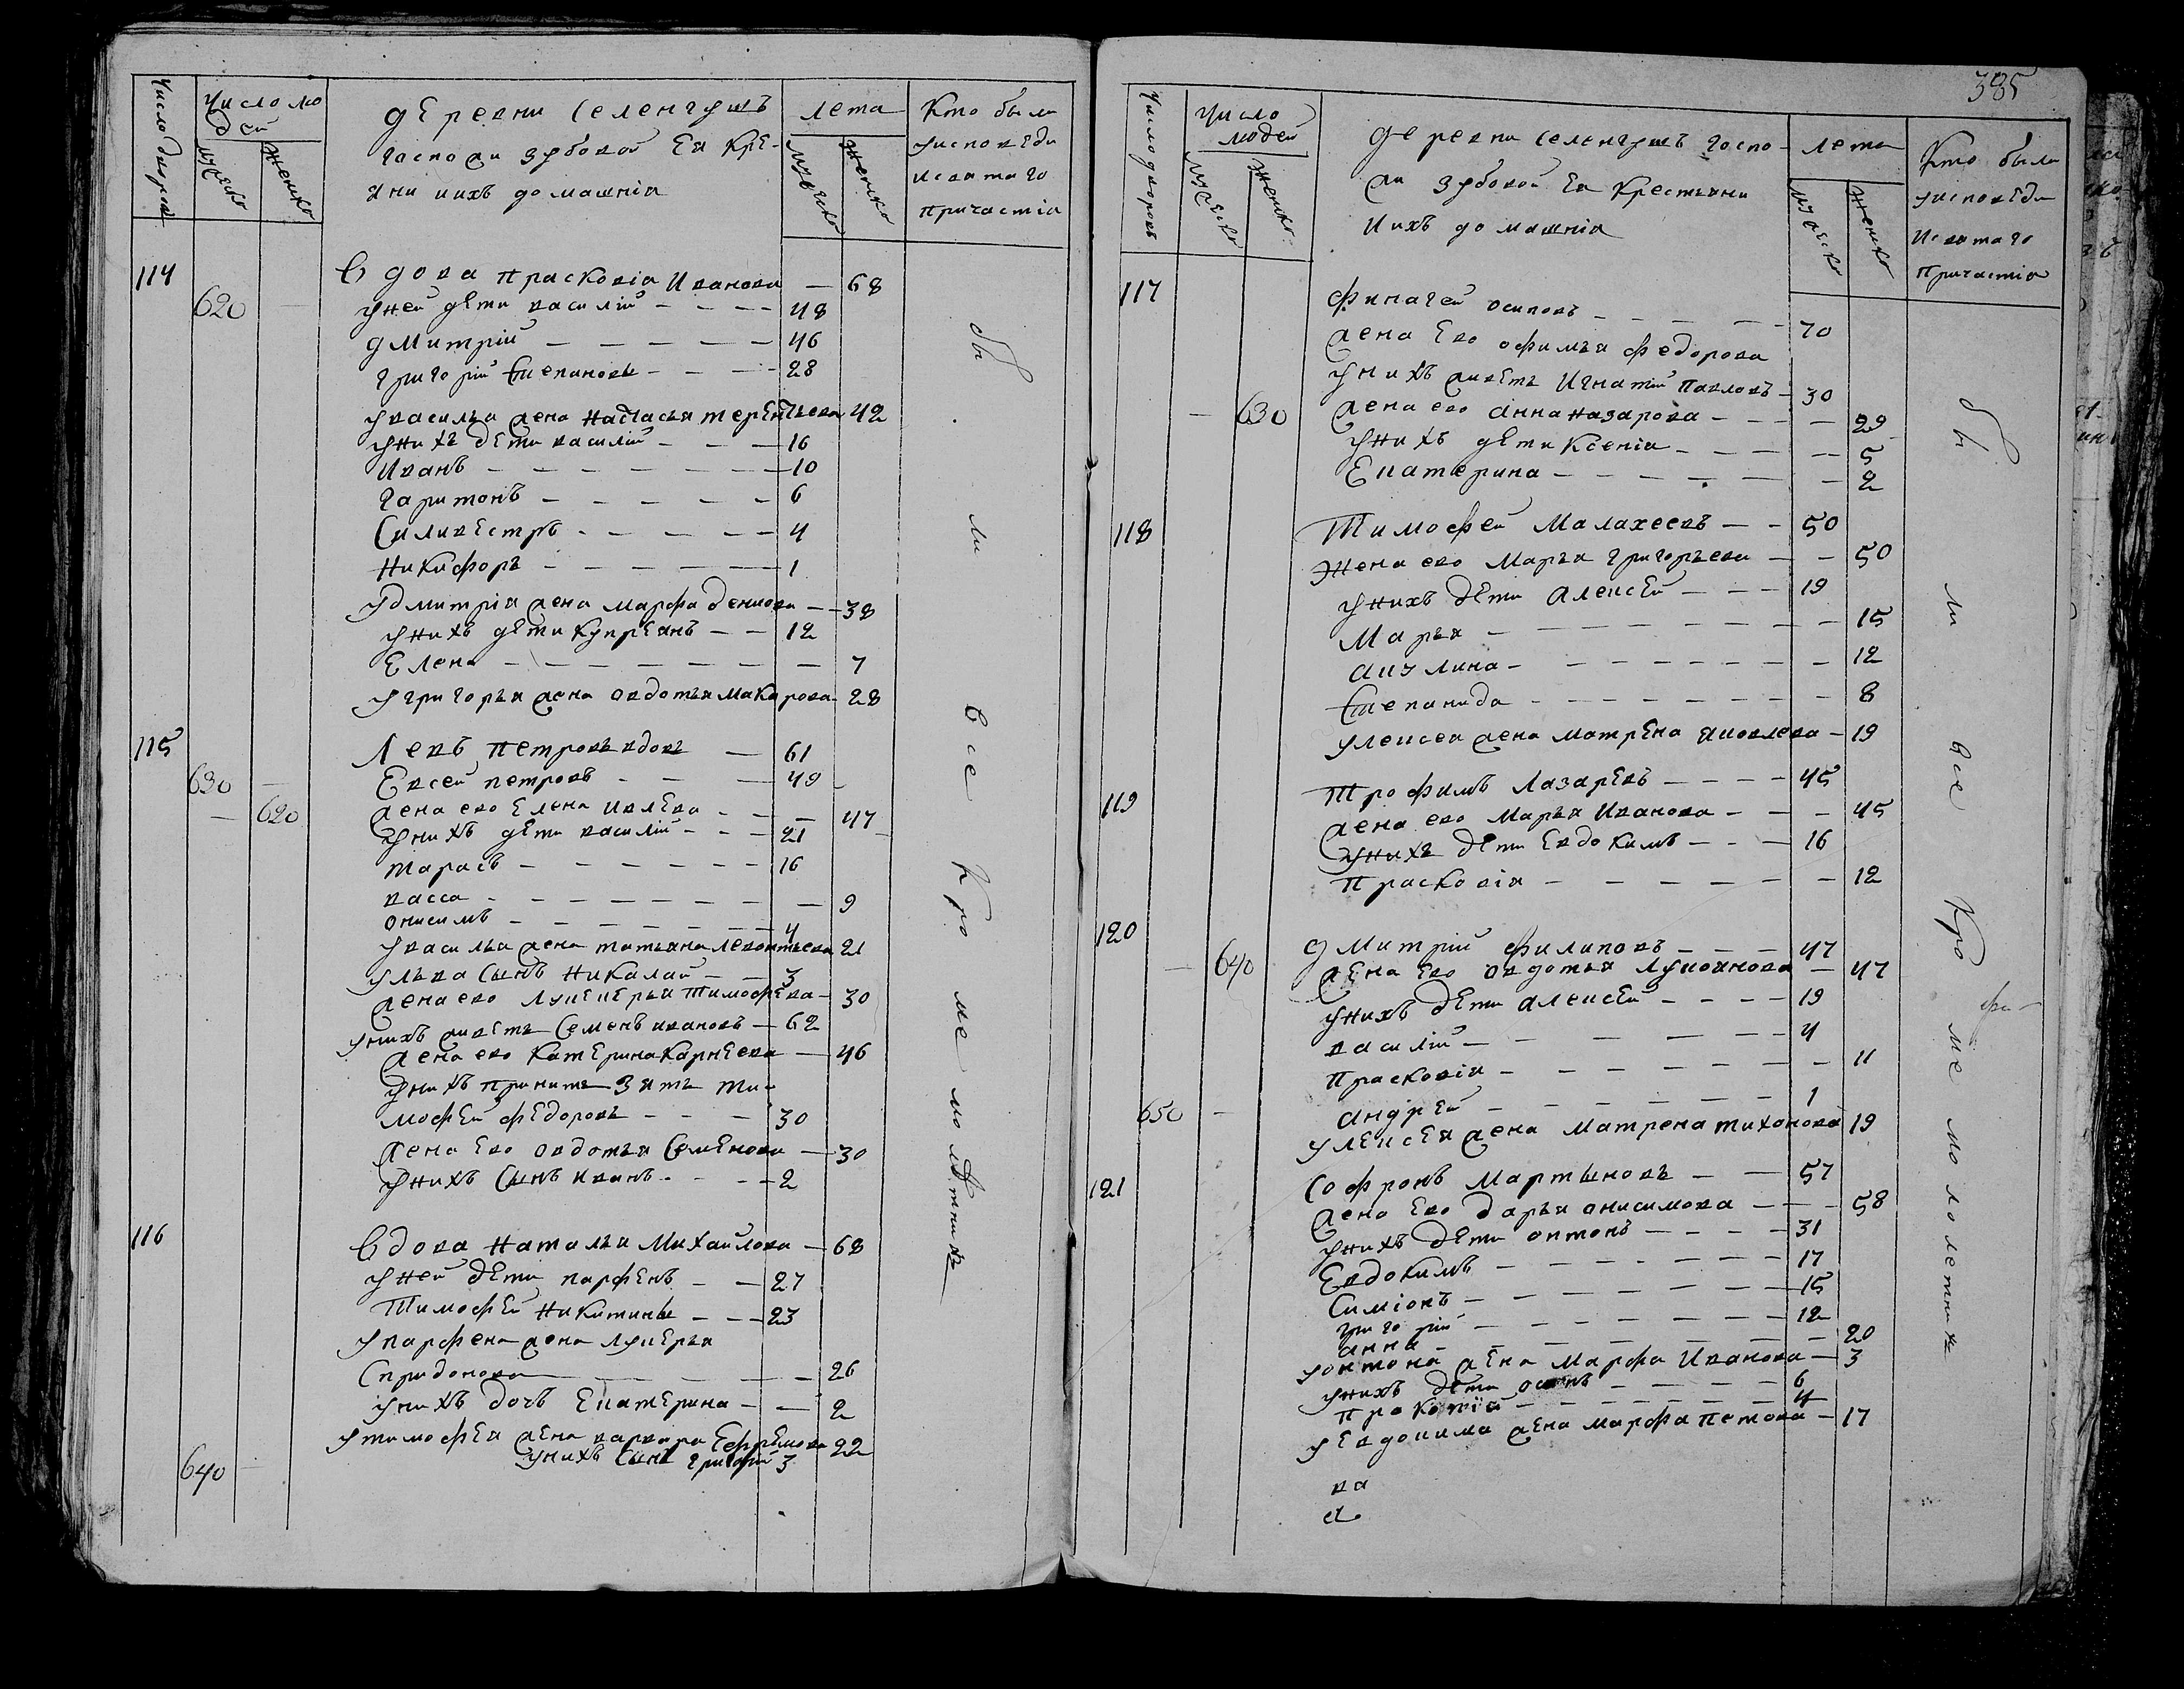 Число дворовъ
Число лю
дей
мужеска
женска
деревни Селенгушъ
госпожи Зубовой Ея Кре-
яни иихъ домашнiи
лета
мужеска
женска
Кто были
уисповѣди
исвятаго
причастiя
114
Вдова Прасковiя Иванова — 68
620
унеи дѣти василiй — 48
дмитрiй — 46
григорiй Степановы — 28
увасилья жена Настасья терентьева 42
унихъ дѣти василiй — 16
Иванъ — 10
Харитонъ — 6
Силивестръ — 4
Никифоръ — 1
удмитрiя жена марфа денисова — 38
унихъ дѣти купрѣянъ — 12
Елена — 7
угригорья жена овдотья макарова 28
115
Левъ Петровъ вдовъ — 61
630
Евсей петровъ — 49
620
жена ево Елена ивлева — 47
унихъ дѣти василiй — 21
тарасъ — 16
васса — 9
онисимъ — 4
увасилья жена татьяна левонтьева 21
ульва сынъ Николай — 3
жена ево лукерья тимофѣева 30
унихъ живетъ Семенъ ивановъ — 62
жена ево Катѣрина Карнѣева — 46
унихъ принятъ Зять ти-
мофей федоровъ — 30
жена ево овдотья Семенова — 30
унихъ сынъ иванъ — 2
116
Вдова Наталья Михайлова — 68
унеи дѣти парфенъ — 27
Тимофей Никитины — 23
упарфена жена лукерья
Спридонова — 26
унихъ дочь Екатерина — 2
утимофѣя жена варвара Ефрѣмова 22
унихъ сынъ григорiй 3
640
бы
ли
все
кро
ме
молѣтнихъ
385
Число дворовъ
Число
людей
мужеска
женска
деревни Селенгушъ госпо-
жи Зубовой Ея Крестьяни
Иихъ домашнiи
лета
мужеска
женска
Кто были
уисповѣди
Исвятаго
Причастiя
117
финагей осиповъ — 70
жена Ево офимья федорова
унихъ живетъ Игнатiй Павловъ — 30
630
жена ево анна назарова — 29
унихъ дѣти Ксенiя — 5
Екатерина — 2
118
Тимофей Малахеевъ — 50
Жена ево Марья григорьева — 50
унихъ дѣти Алексѣй — 19
Марья — 15
акулина — 12
Степанида — 8
улексея жена матрѣна яковлева — 19
119
Трофимъ Лазарѣвъ — 45
жена ево Марья Иванова — 45
унихъ дѣти Евдокимъ — 16
Прасковiя — 12
120
дмитрiй филиповъ — 47
640
жена ево овдотья лукоянова — 47
унихъ дѣти алексѣй — 19
василiй — 4
Прасковiя — 11
650
андрей — 1
улексѣя жена матрена тихонова 19
121
Софронъ Мартыновъ — 57
жена ево дарья онисимова — 58
унихъ дѣти антонъ — 31
Евдокимъ — 17
Симiонъ — 15
григорiй — 12
анна — 20
уонтона жена Марфа Иванова — 3
унихъ дѣти осипъ — 6
Прокопiй — 4
уевдокима жена марфа петова — 17
ва
бы
ли
все
кро
ме
мололетних